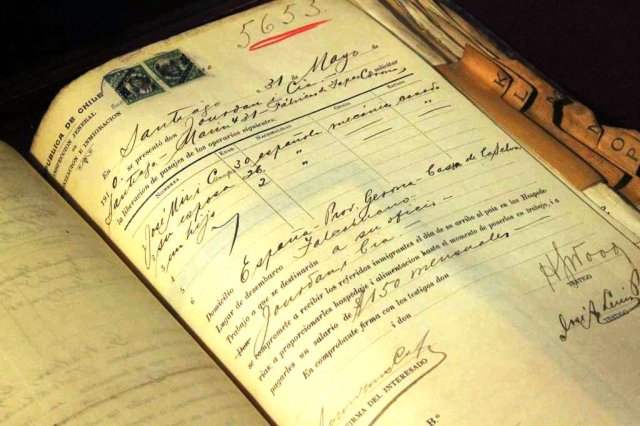 5653
REPUBLICA DE CHILE
INSPECCION JENERAL
COLONIZACION E INMIGRACION
En Santiago a 31 de Mayo de
1910 se presentó don Jourdan & Cia. solicitar
Santiago - Fábrica de Tapas Corona
la liberacion de pasajes de los operarios siguientes:
NOMBRES EDAD NACIONALIDAD OFICIO ESTADO
1 José Miró C 30 española mecánico casado
2 su esposa 26 " "
3 un hijo 2 "
4
5
6
Domicilio España - Prov. Gerona - Cassa de la Selva
Lugar de desembarco Talcahuano
Trabajo a que se destinarán a su oficio
Don Jourdan & Cia
se compromete a recibir los referidos inmigrantes el dia de su arribo al pais en las Hospede-
rias, a proporcionarles hospedaje i alimentacion hasta el momento de ponerlos en trabajo, i a
pagarles un salario de $150 mensuales
En comprobante firma con los testigos don
i don
FIRMA DEL INTERESADO
TESTIGO
TESTIGO
V° B°
K
L
M
N
O
P